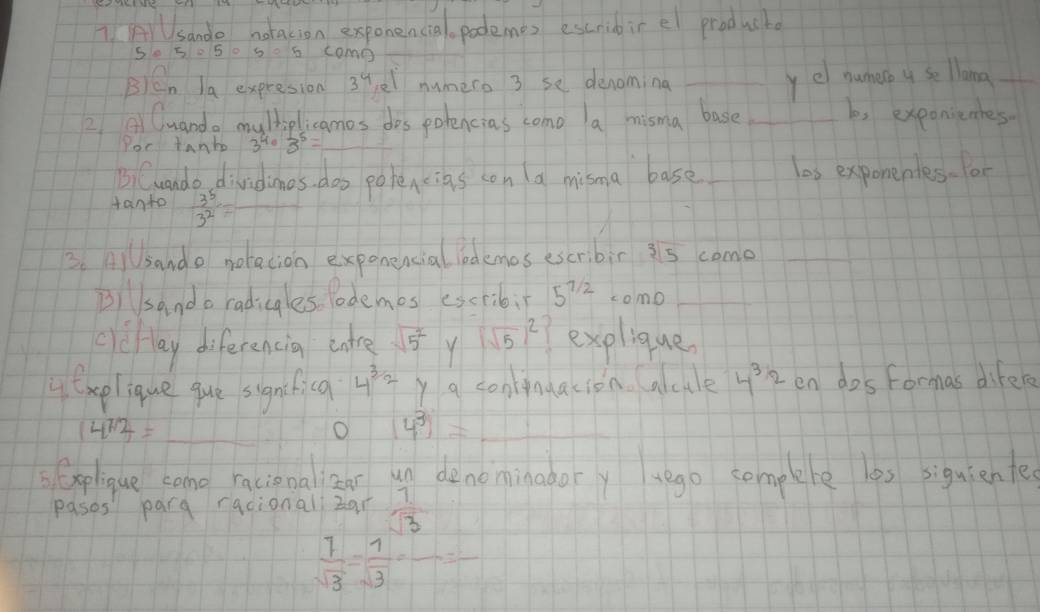 1. A) Usando notacion exponencial, podemos escribir el producto
5 · 5 · 5 · 5 · 5 · 5 como
B) En la expresion 3⁴, el numero 3 se denomina ____ y el numero 4 se llama ____
2. A) Cuando multiplicamos dos potencias como la misma base ____ los exponientes.
Por tanto 3⁴ · 3⁵ = ____
B) Cuando dividimos dos potencias con la misma base ____ los exponentes. Por
tanto 3⁵/3² = ____
3. A) Usando notacion exponencial Podemos escribir ∛5 como ____
B) Usando radicales. Podemos escribir 5^1/2 como ____
c) ¿Hay diferencia entre √5² y (√5)²? explique.
4. Explique que significa 4^3/2 y a continuación. Calcule 4^3/2 en dos formas difere
(4^1/2 = ____ o (4³) = ____
5. Explique como racionalizar un denominador y luego complete los siguientes
pasos para racionalizar 1/√3
1/√3 = 1/√3 · __ = __